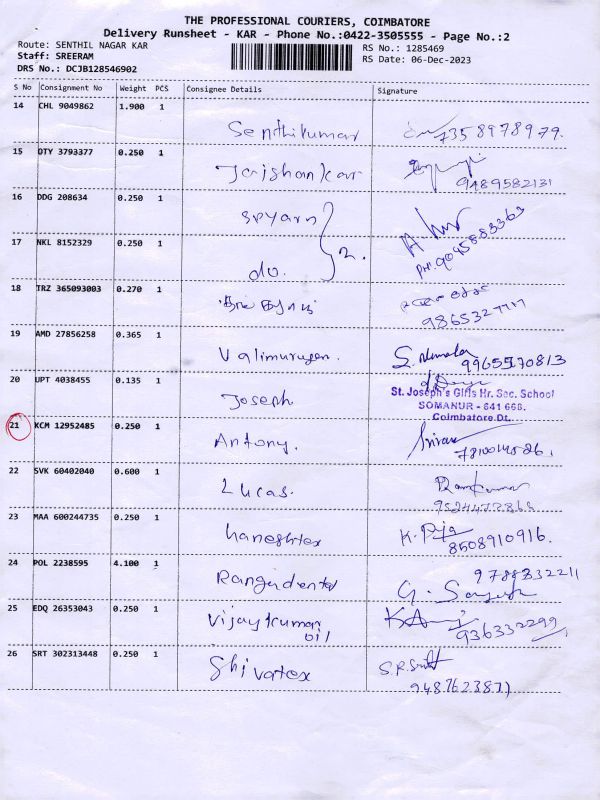 THE PROFESSIONAL COURIERS, COIMBATORE
Delivery Runsheet - KAR - Phone No.:0422-3505555 - Page No.:2
Route: SENTHIL NAGAR KAR RS No.: 1285469
Staff: SREERAM RS Date: 06-Dec-2023
DRS No.: DCJB128546902
S No Consignment No Weight PCS Consignee Details Signature
14 CHL 9049862 1.900 1
Senthilkumar 7358978979.
15 DTY 3793377 0.250 1
Jaishankar 9489582131
16 DDG 208634 0.250 1
SPyarn
17 NKL 8152329 0.250 1
do. 2. PH: 9045883363
18 TRZ 365093003 0.270 1
19 AMD 27856258 0.365 1
Valimurugan. 9965570813
20 UPT 4038455 0.135 1
Joseph
St. Joseph's Girls Hr. Sec. School
SOMANUR - 641 668.
Coimbatore Dt.
21 KCM 12952485 0.250 1
Antony.
22 SVK 60402040 0.600 1
Lucas. Ramkumar
23 MAA 600244735 0.250 1
K. 8508910916.
24 POL 2238595 4.100 1
9788832211
25 EDQ 26353043 0.250 1
Vijaykumar
oil 936332299
26 SRT 302313448 0.250 1
Shivatex S.R.